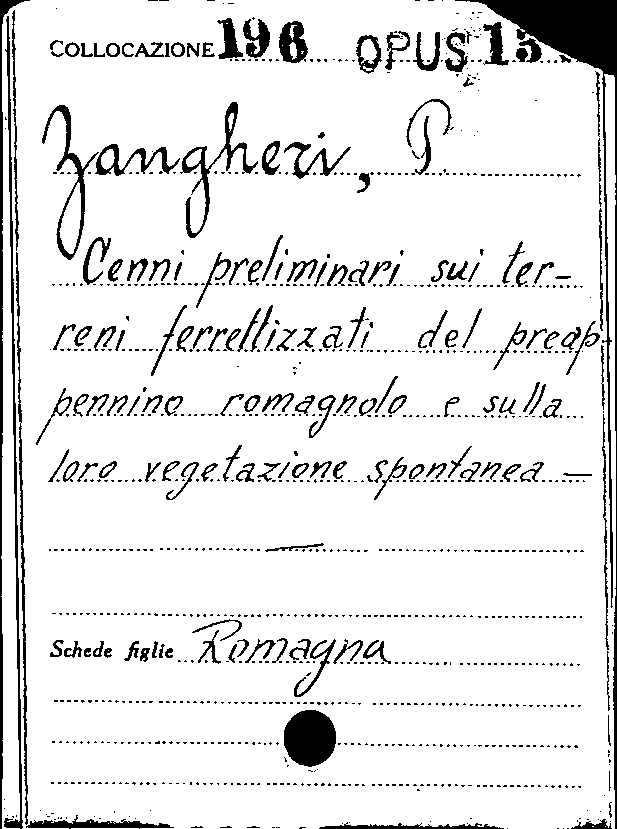 COLLOCAZIONE 196 OPUS 15
Zangheri, P.
Cenni preliminari sui ter-
reni ferrettizzati del preap-
pennino romagnolo e sulla
loro vegetazione spontanea —
—
Schede figlie Romagna